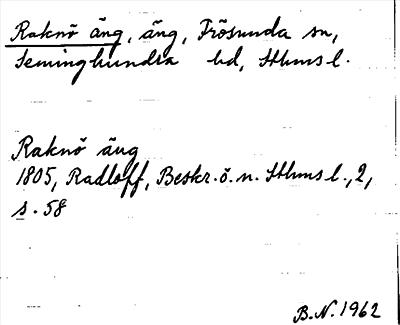 Raknö äng, äng, Frösunda sn,
Seminghundra hd, Sthms l.
Raknö äng
1805, Radloff, Beskr. ö. n. Sthms l., 2,
s. 58
B.N. 1962